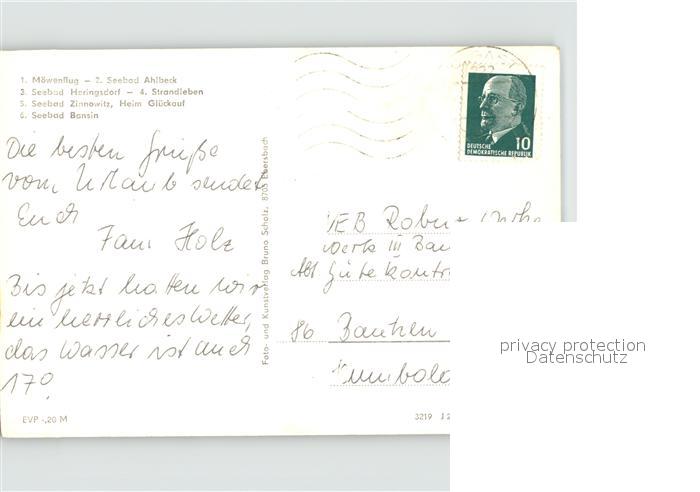 1. Möwenflug – 2. Seebad Ahlbeck
3. Seebad Heringsdorf – 4. Strandleben
5. Seebad Zinnowitz, Heim Glückauf
6. Seebad Bansin
Die besten Grüße
vom Urlaub sendet
Euch
Fam. Holz
Bis jetzt hatten wir
ein herrliches Wetter,
das Wasser ist auch
17°
EVP -,20 M
Foto- und Kunstverlag Bruno Scholz, 8705 Ebersbach
10
DEUTSCHE
DEMOKRATISCHE REPUBLIK
VEB Robur
werk III Bau
Abt. Gütekontr
86 Bautzen
3219
privacy protection
Datenschutz